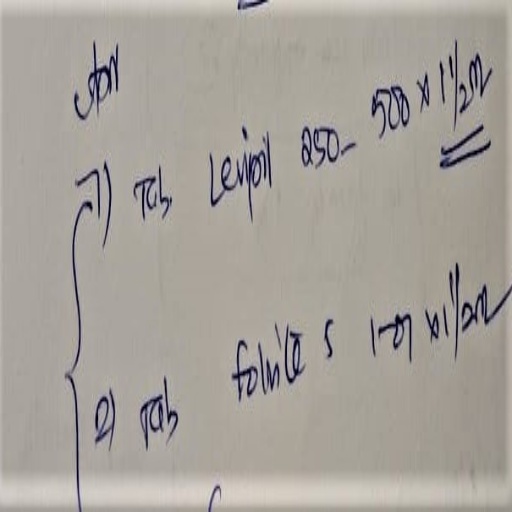 1) Tab. Levipil 250 - 500 x 1 1/2 m
2) Tab Folvite 5 1-0 x 1 1/2 m